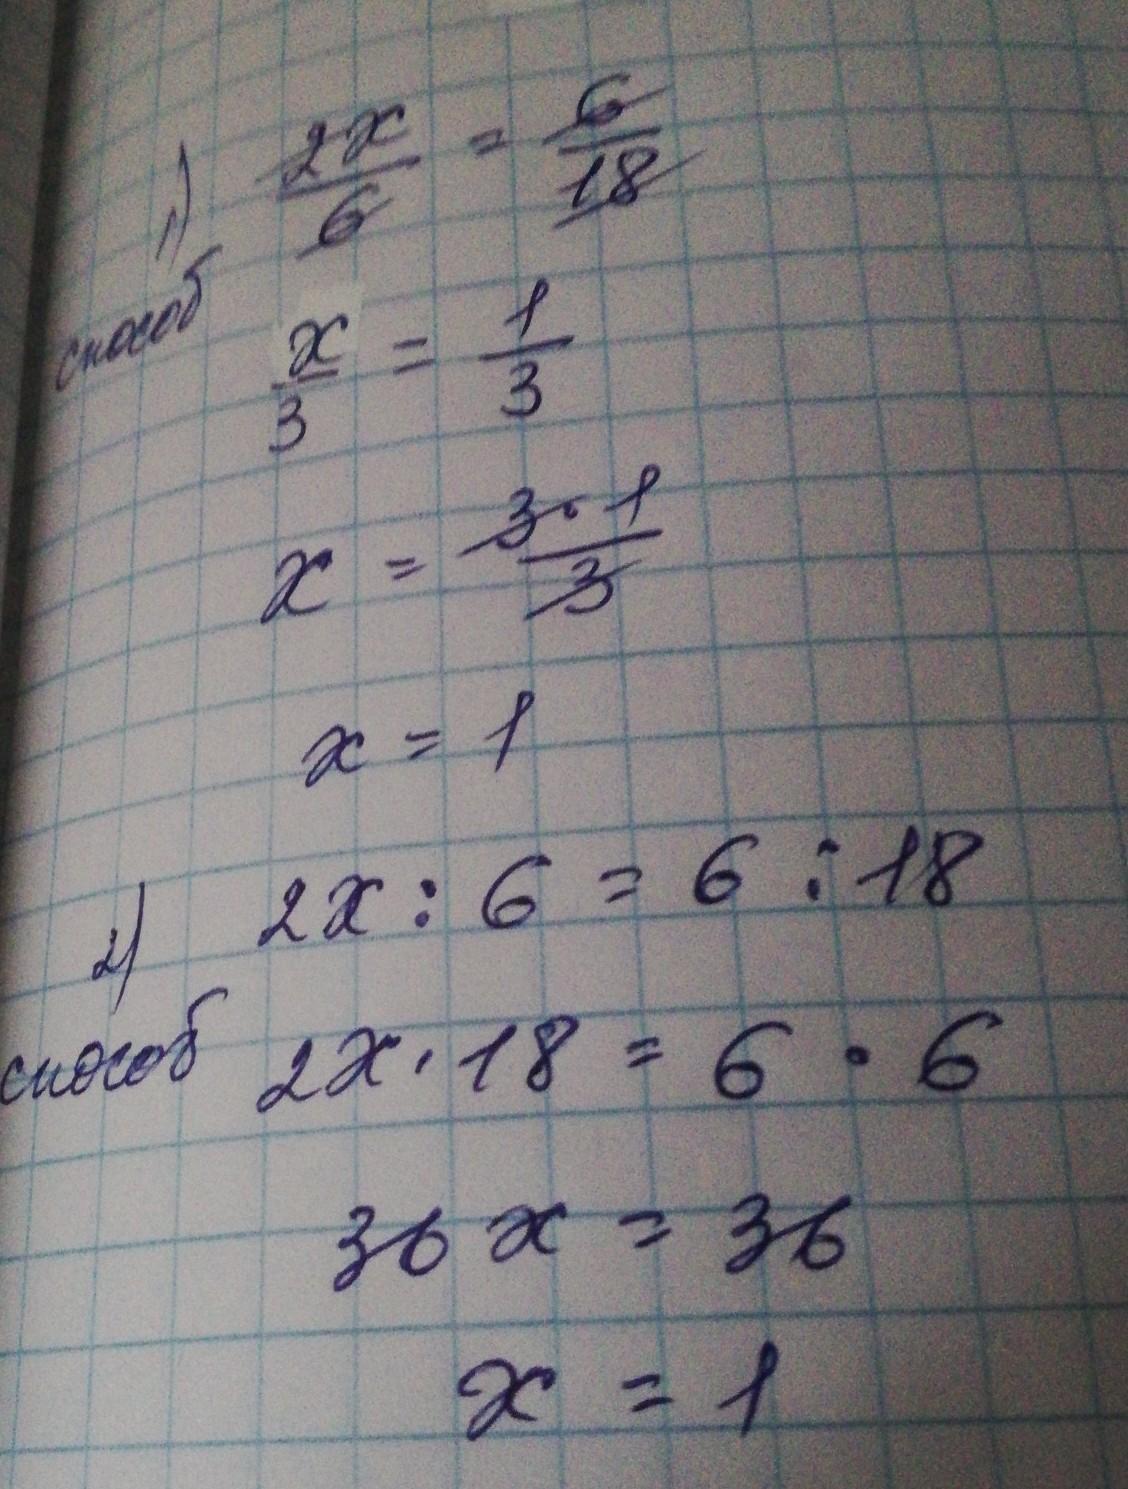 1) способ
2x/6 = 6/18
x/3 = 1/3
x = 3·1/3
x = 1
2) способ
2x : 6 = 6 : 18
2x · 18 = 6 · 6
36x = 36
x = 1